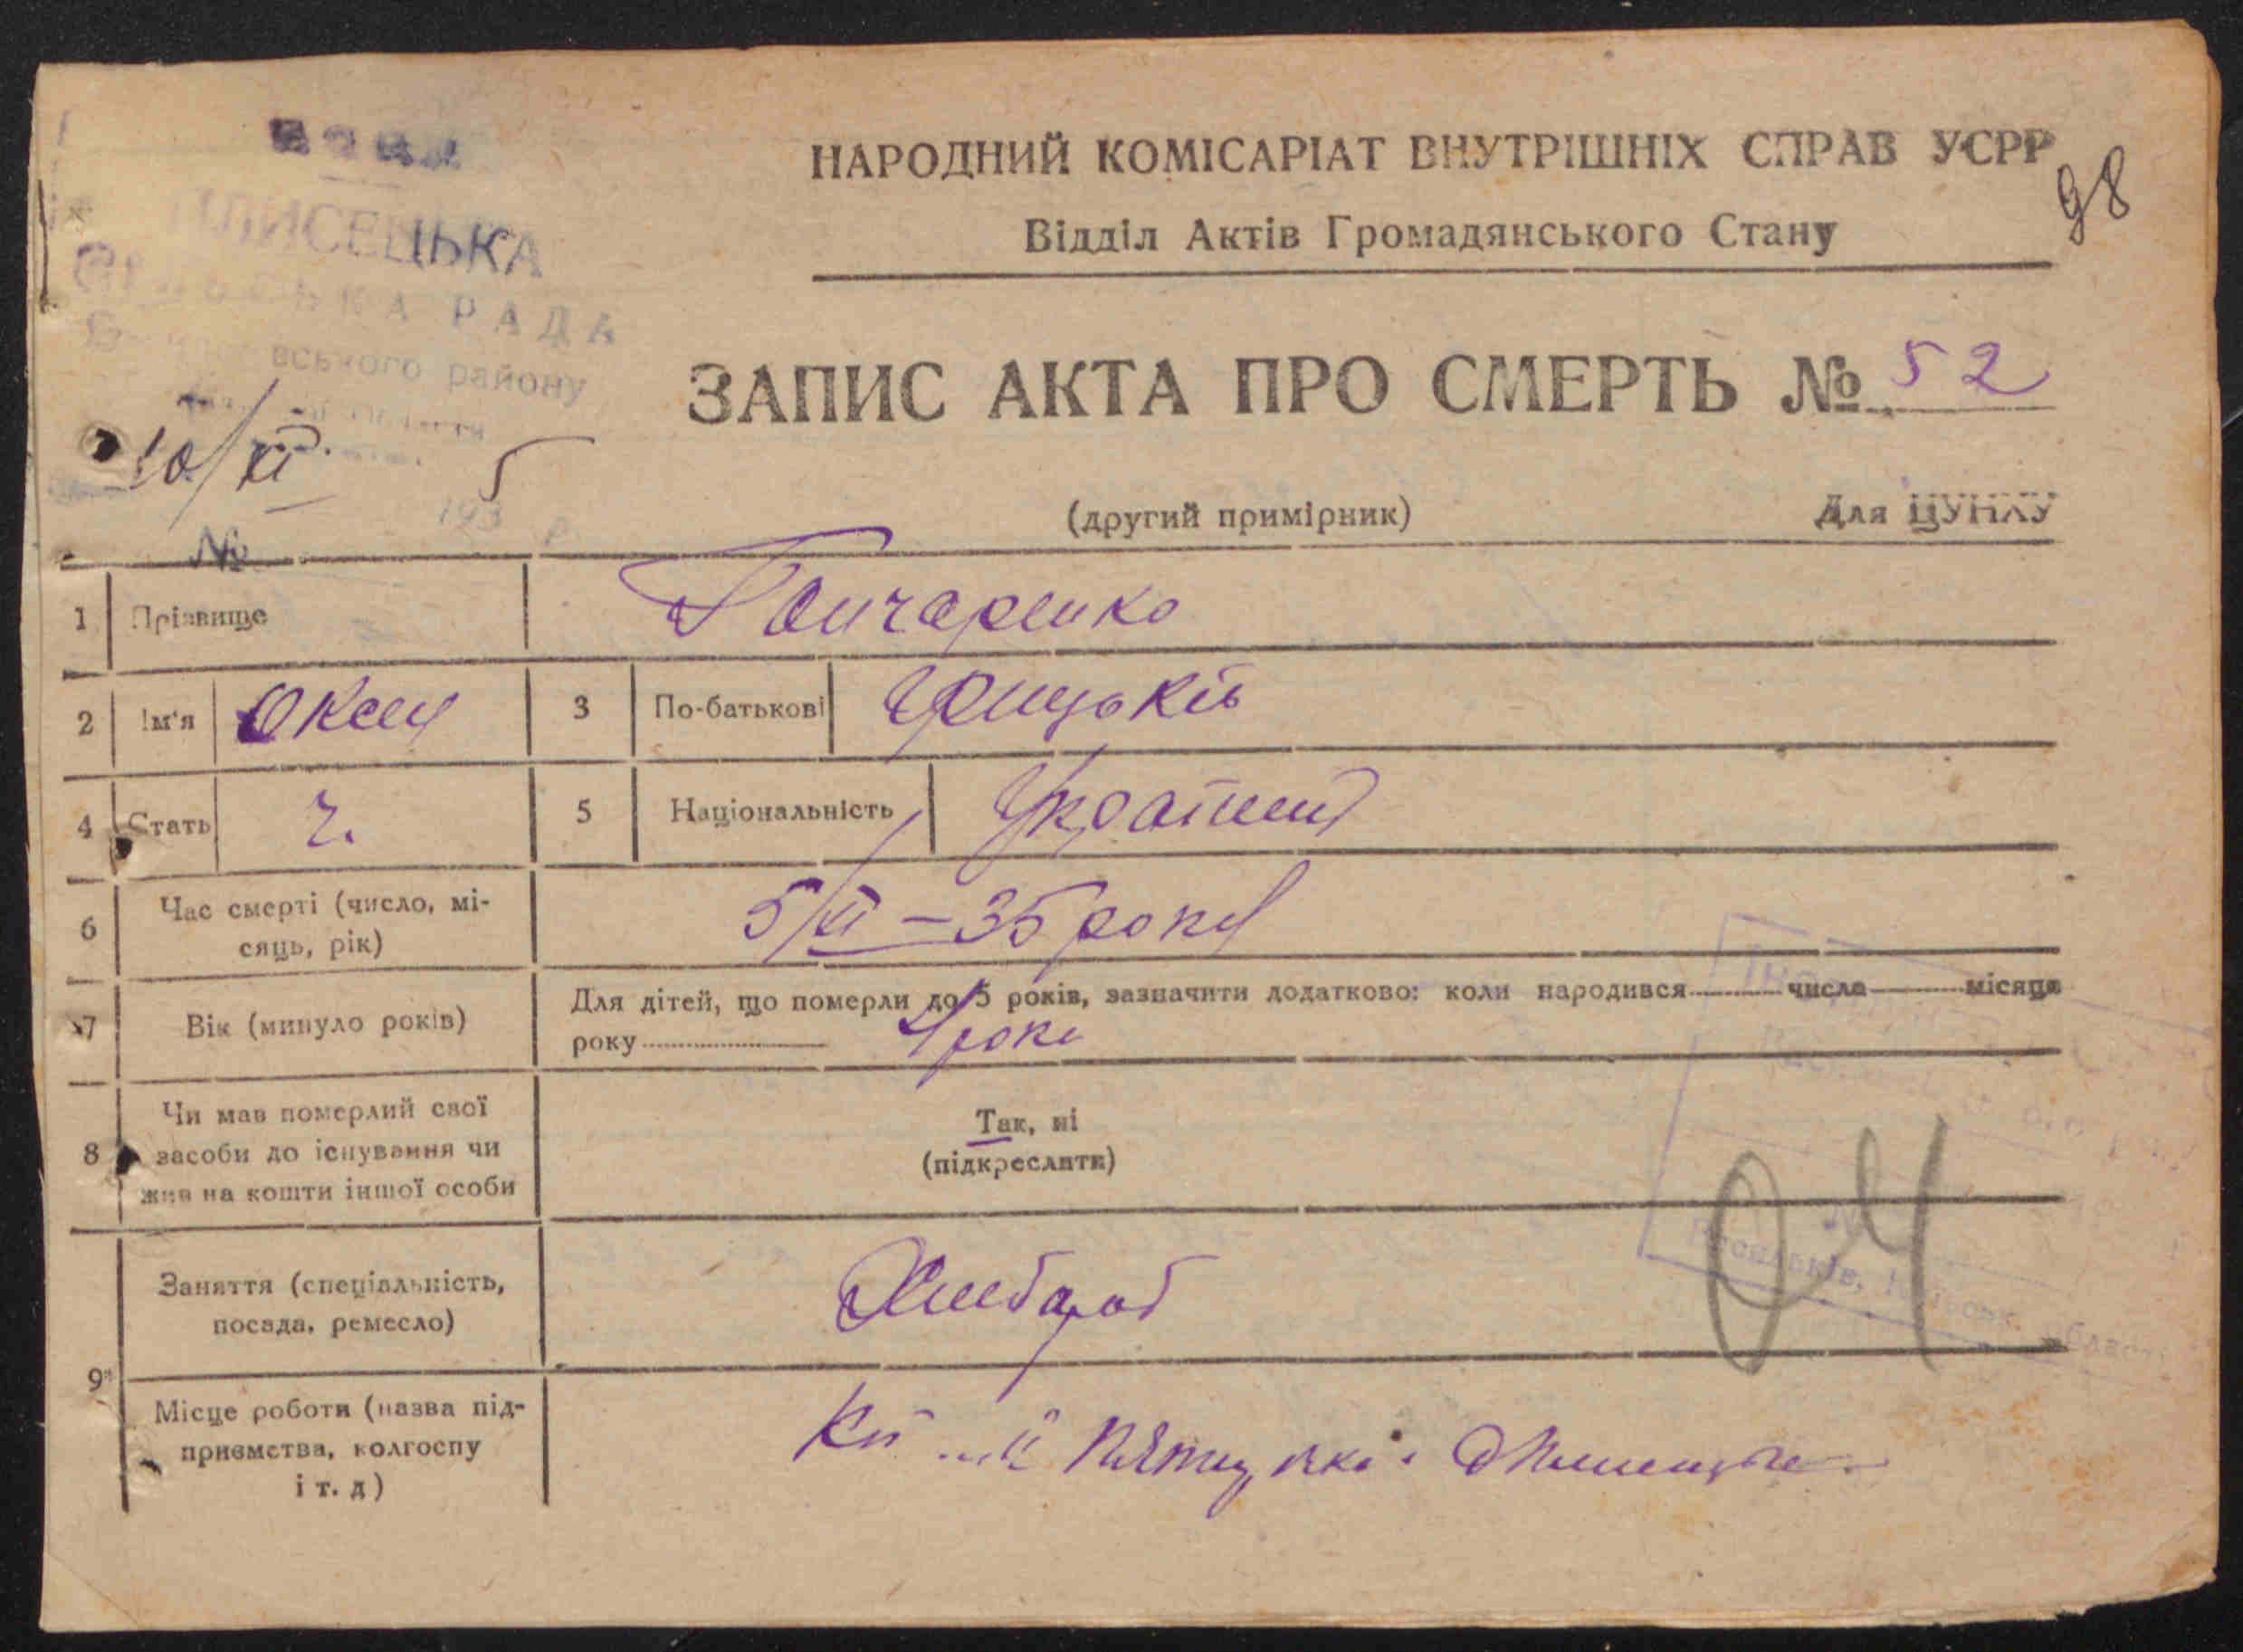 НАРОДНИЙ КОМІСАРІАТ ВНУТРІШНІХ СПРАВ УСРР
98
Відділ Актів Громадянського Стану
РАДА
вського району
10/XI
5
193 р.
№
ЗАПИС АКТА ПРО СМЕРТЬ № 52
(другий примірник)
Для ЦУНХУ
1 Прізвище Гончаренко
2 Ім'я 3 По-батькові Грицьків
4 Стать ч. 5 Національність
6 Час смерті (число, мі-
сяць, рік)
5/XI – 35 року
7 Вік (минуло років)
Для дітей, що померли до 5 років, зазначити додатково: коли народився числа місяця
року 4 роки
8 Чи мав померлий свої
засоби до існування чи
жив на кошти іншої особи
Так, ні
(підкреслити)
04
9 Заняття (спеціальність,
посада, ремесло)
Хлебароб
Місце роботи (назва під-
приємства, колгоспу
і т. д)